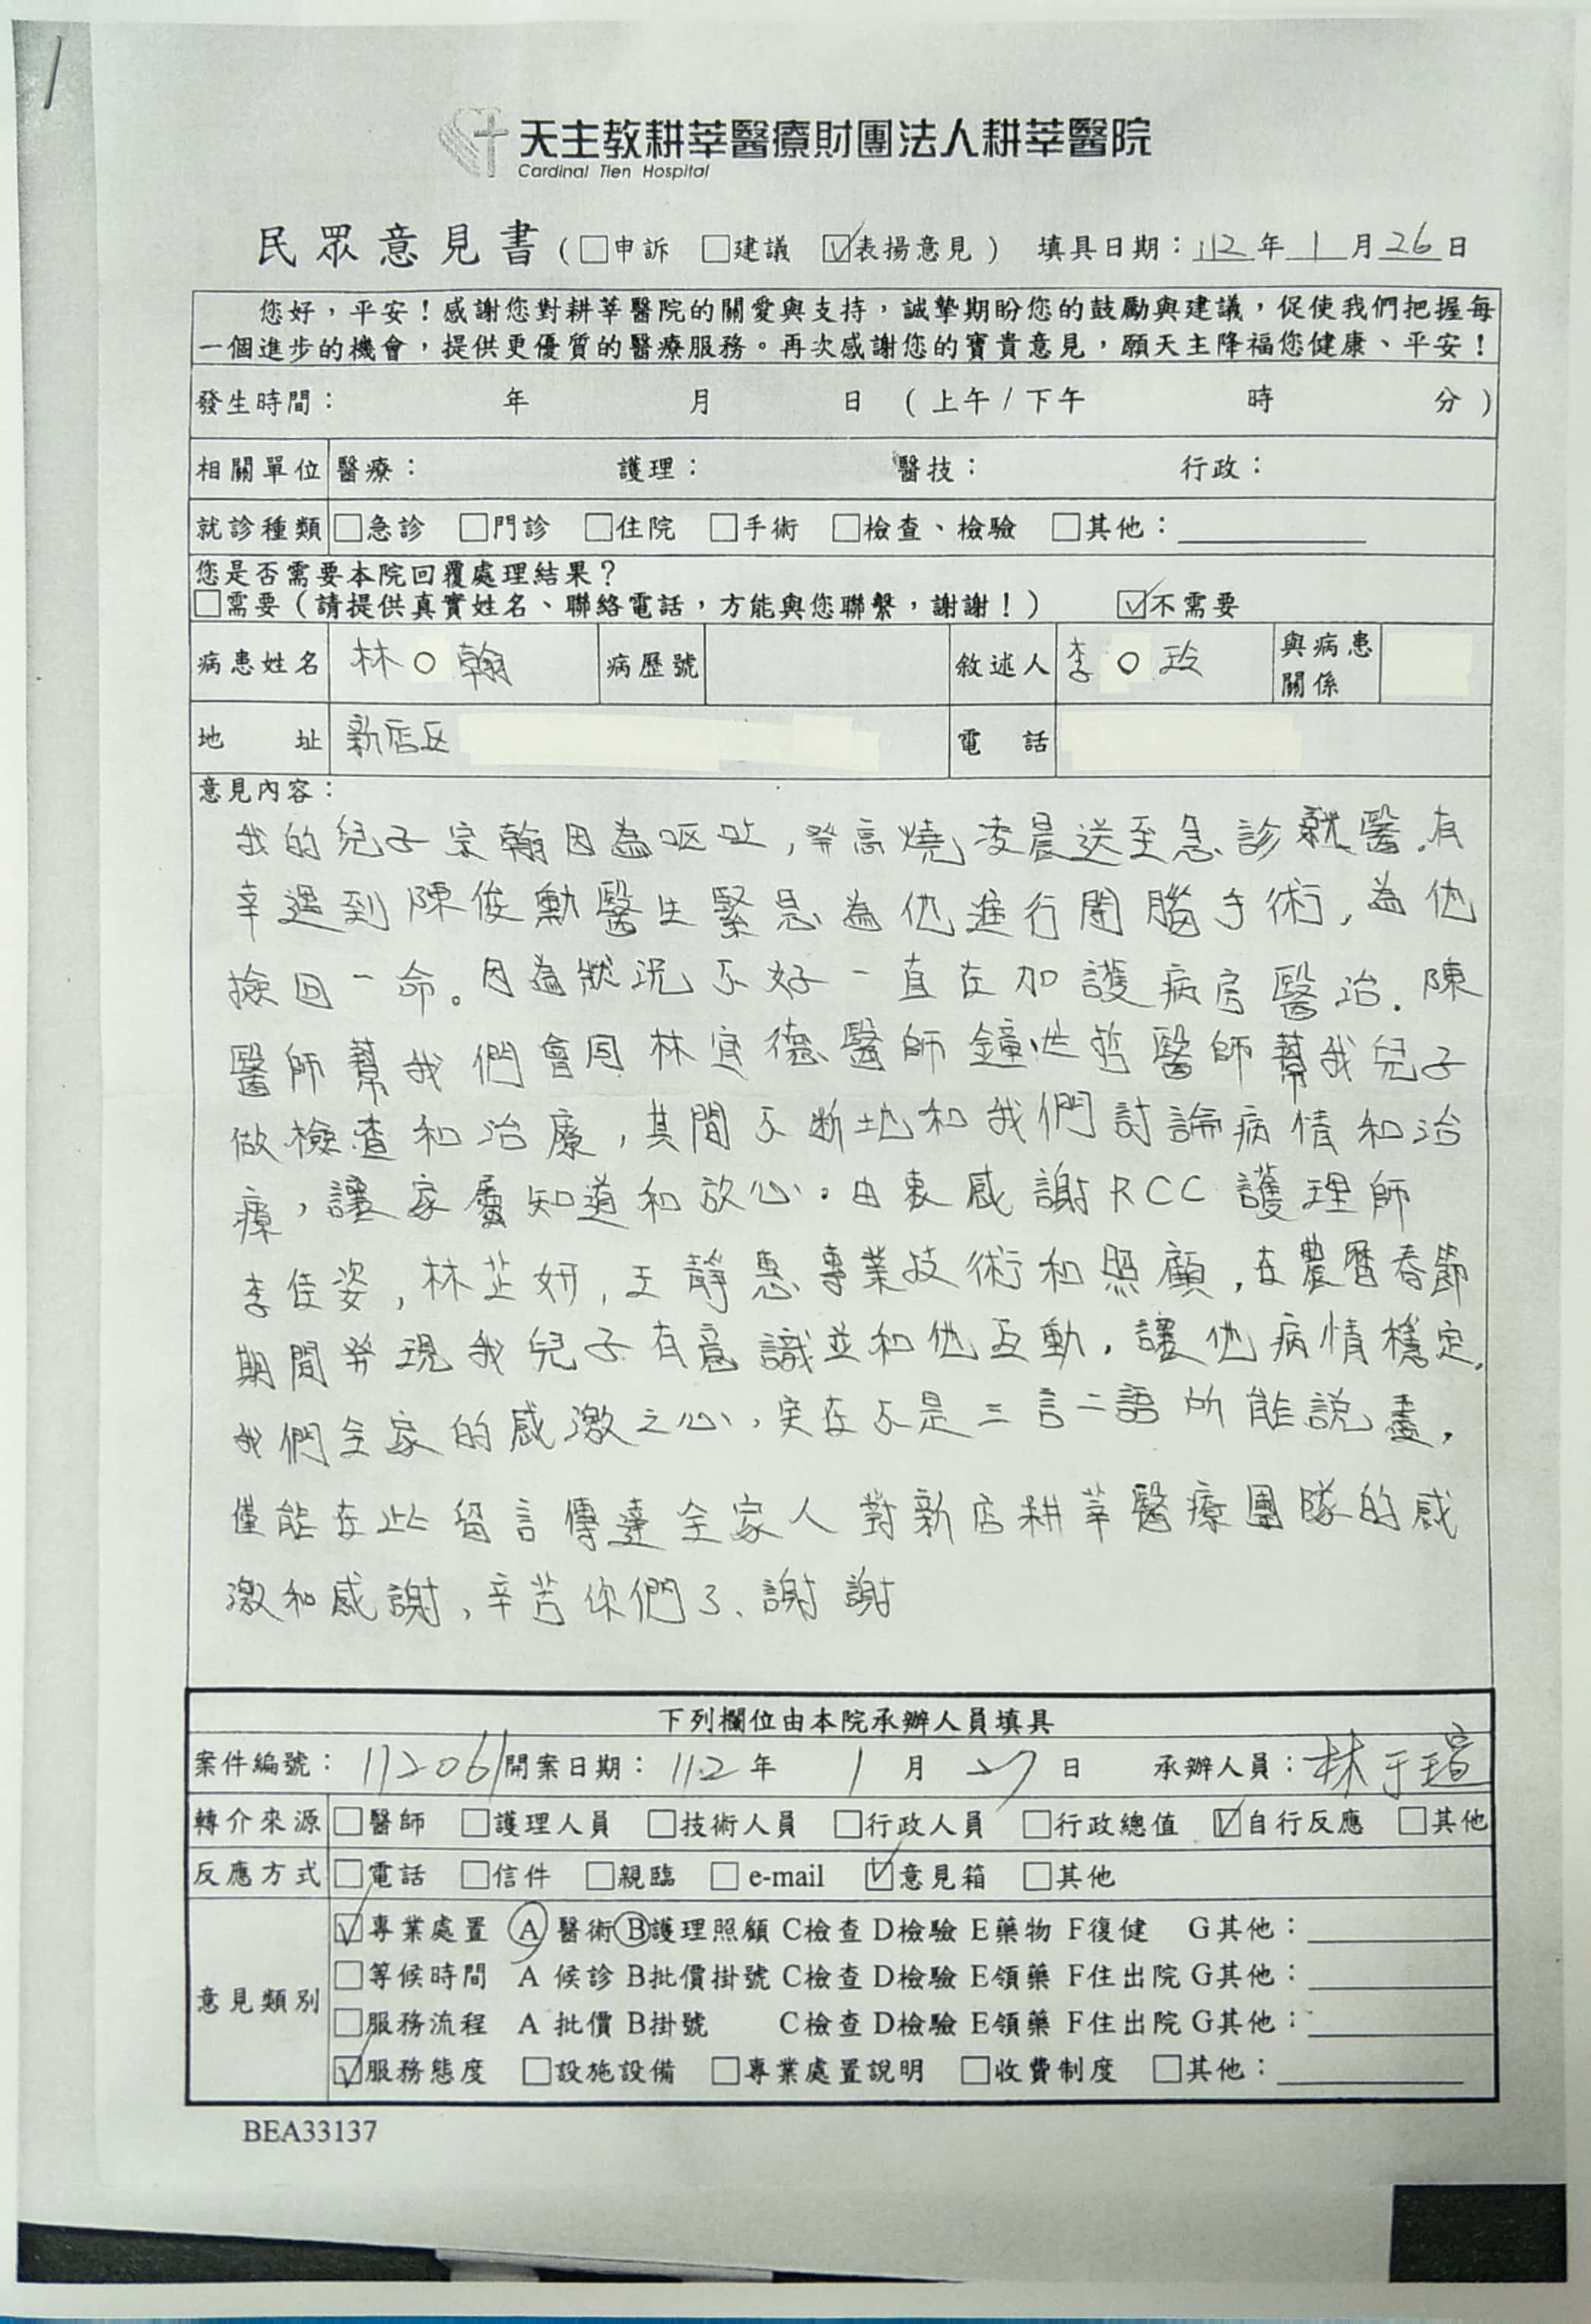 天主教耕莘醫療財團法人耕莘醫院
Cardinal Tien Hospital
民眾意見書(□申訴 □建議 ☑表揚意見) 填具日期:112年1月26日
您好,平安!感謝您對耕莘醫院的關愛與支持,誠摯期盼您的鼓勵與建議,促使我們把握每
一個進步的機會,提供更優質的醫療服務。再次感謝您的寶貴意見,願天主降福您健康、平安!
發生時間: 年 月 日 (上午/下午 時 分)
相關單位 醫療: 護理: 醫技: 行政:
就診種類 □急診 □門診 □住院 □手術 □檢查、檢驗 □其他:
您是否需要本院回覆處理結果?
□需要(請提供真實姓名、聯絡電話,方能與您聯繫,謝謝!) ☑不需要
病患姓名 林○翰 病歷號 敘述人 李○玫 與病患關係
地址 新店区 電話
意見內容:
我的兒子宗翰因為呕吐,發高燒凌晨送至急診就醫.有
幸遇到陳俊勳醫生緊急為他進行開腦手術,為他
撿回一命。因為狀況不好一直在加護病房醫治.陳
醫師幫我們會同林宜德醫師鐘世哲醫師幫我兒子
做檢查和治療,其間不斷地和我們討論病情和治
療,讓家屬知道和放心。由衷感謝RCC護理師
李佳姿,林芷妍,王靜惠專業技術和照顧,在農曆春節
期間發現我兒子有意識並和他互動,讓他病情穩定.
我們全家的感激之心,実在不是三言二語所能說盡,
僅能在此留言傳達全家人對新店耕莘醫療團隊的感
激和感謝,辛苦你們了、謝謝
下列欄位由本院承辦人員填具
案件編號:112061 開案日期:112年 1月 27日 承辦人員:林于瑄
轉介來源 □醫師 □護理人員 □技術人員 □行政人員 □行政總值 ☑自行反應 □其他
反應方式 □電話 □信件 □親臨 □e-mail ☑意見箱 □其他
意見類別 ☑專業處置 Ⓐ醫術Ⓑ護理照顧 C檢查 D檢驗 E藥物 F復健 G其他:
□等候時間 A候診 B批價掛號 C檢查 D檢驗 E領藥 F住出院 G其他:
□服務流程 A批價 B掛號 C檢查 D檢驗 E領藥 F住出院 G其他:
☑服務態度 □設施設備 □專業處置說明 □收費制度 □其他:
BEA33137